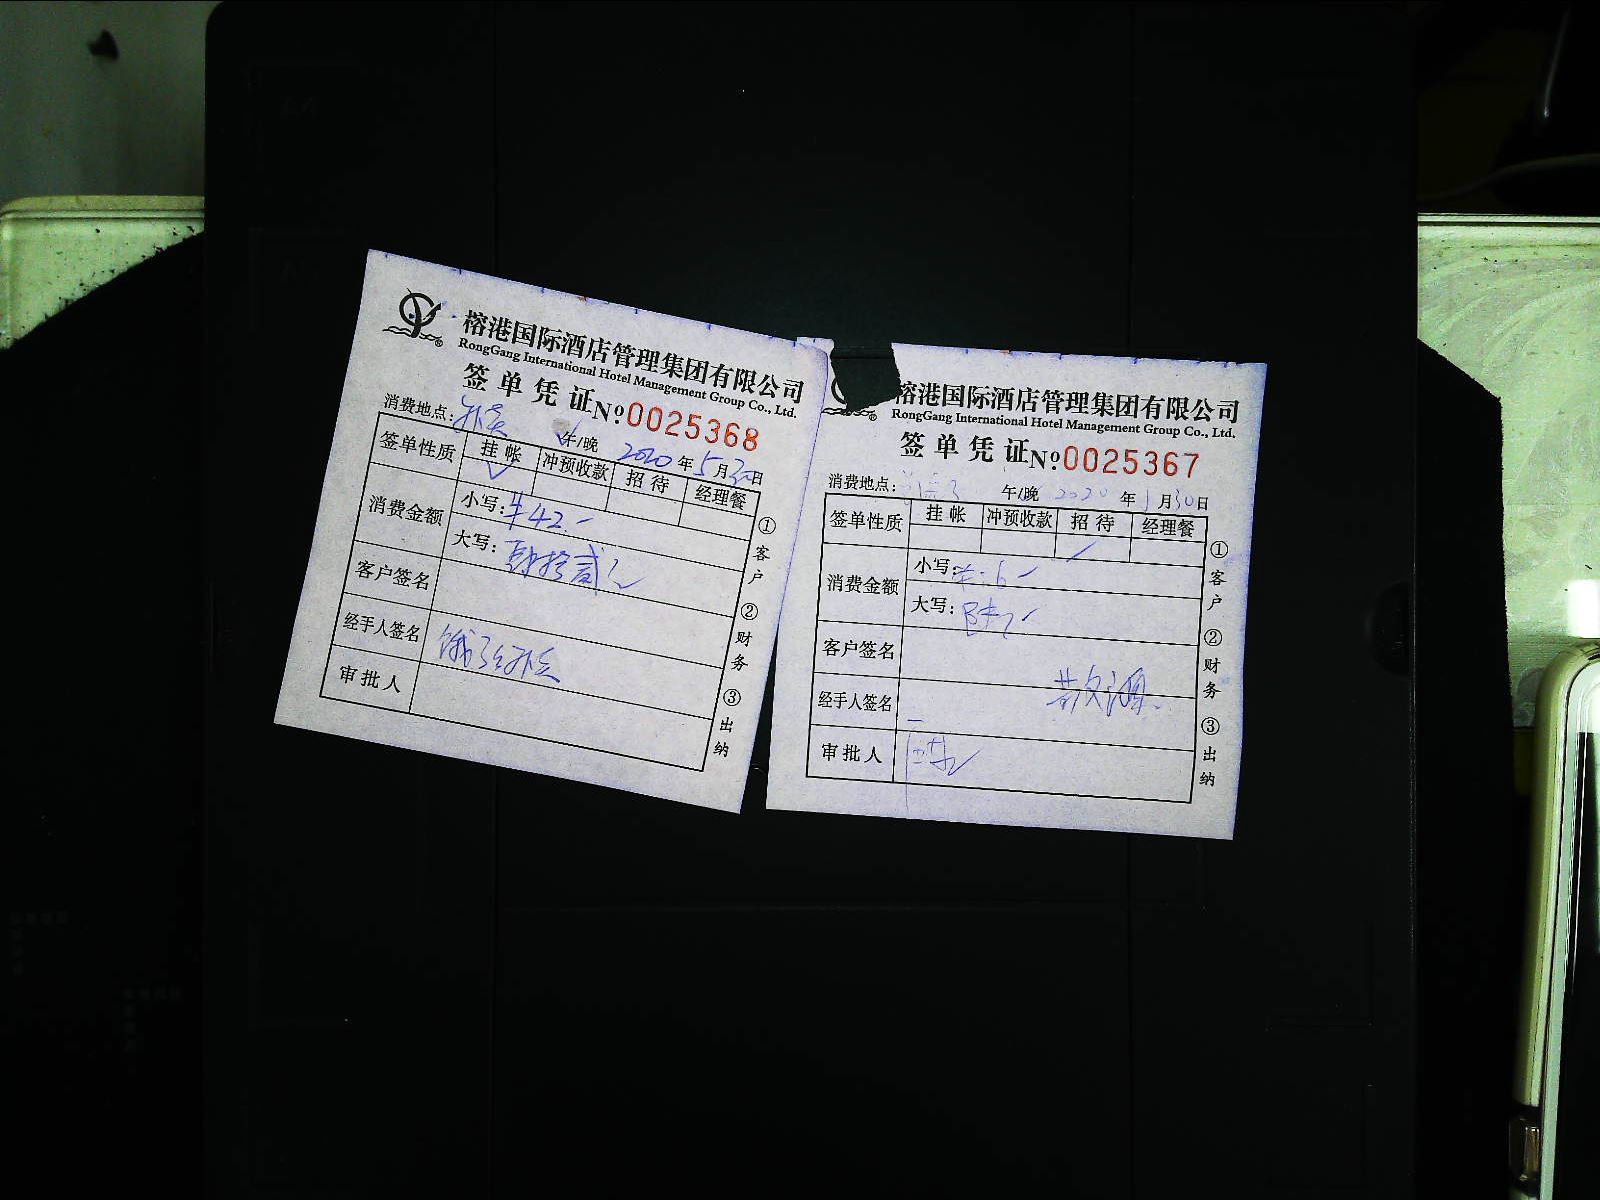 榕港国际酒店管理集团有限公司
RongGang International Hotel Management Group Co., Ltd.
签单凭证 №0025368
消费地点： 午/晚 2020年5月30日
签单性质 挂帐 冲预收款 招待 经理餐
消费金额 小写：¥42.-
大写：肆拾贰元
客户签名
经手人签名
审批人
①客户 ②财务 ③出纳
榕港国际酒店管理集团有限公司
RongGang International Hotel Management Group Co., Ltd.
签单凭证 №0025367
消费地点： 午/晚 2020年5月30日
签单性质 挂帐 冲预收款 招待 经理餐
消费金额 小写：
大写：
客户签名
经手人签名
审批人
①客户 ②财务 ③出纳